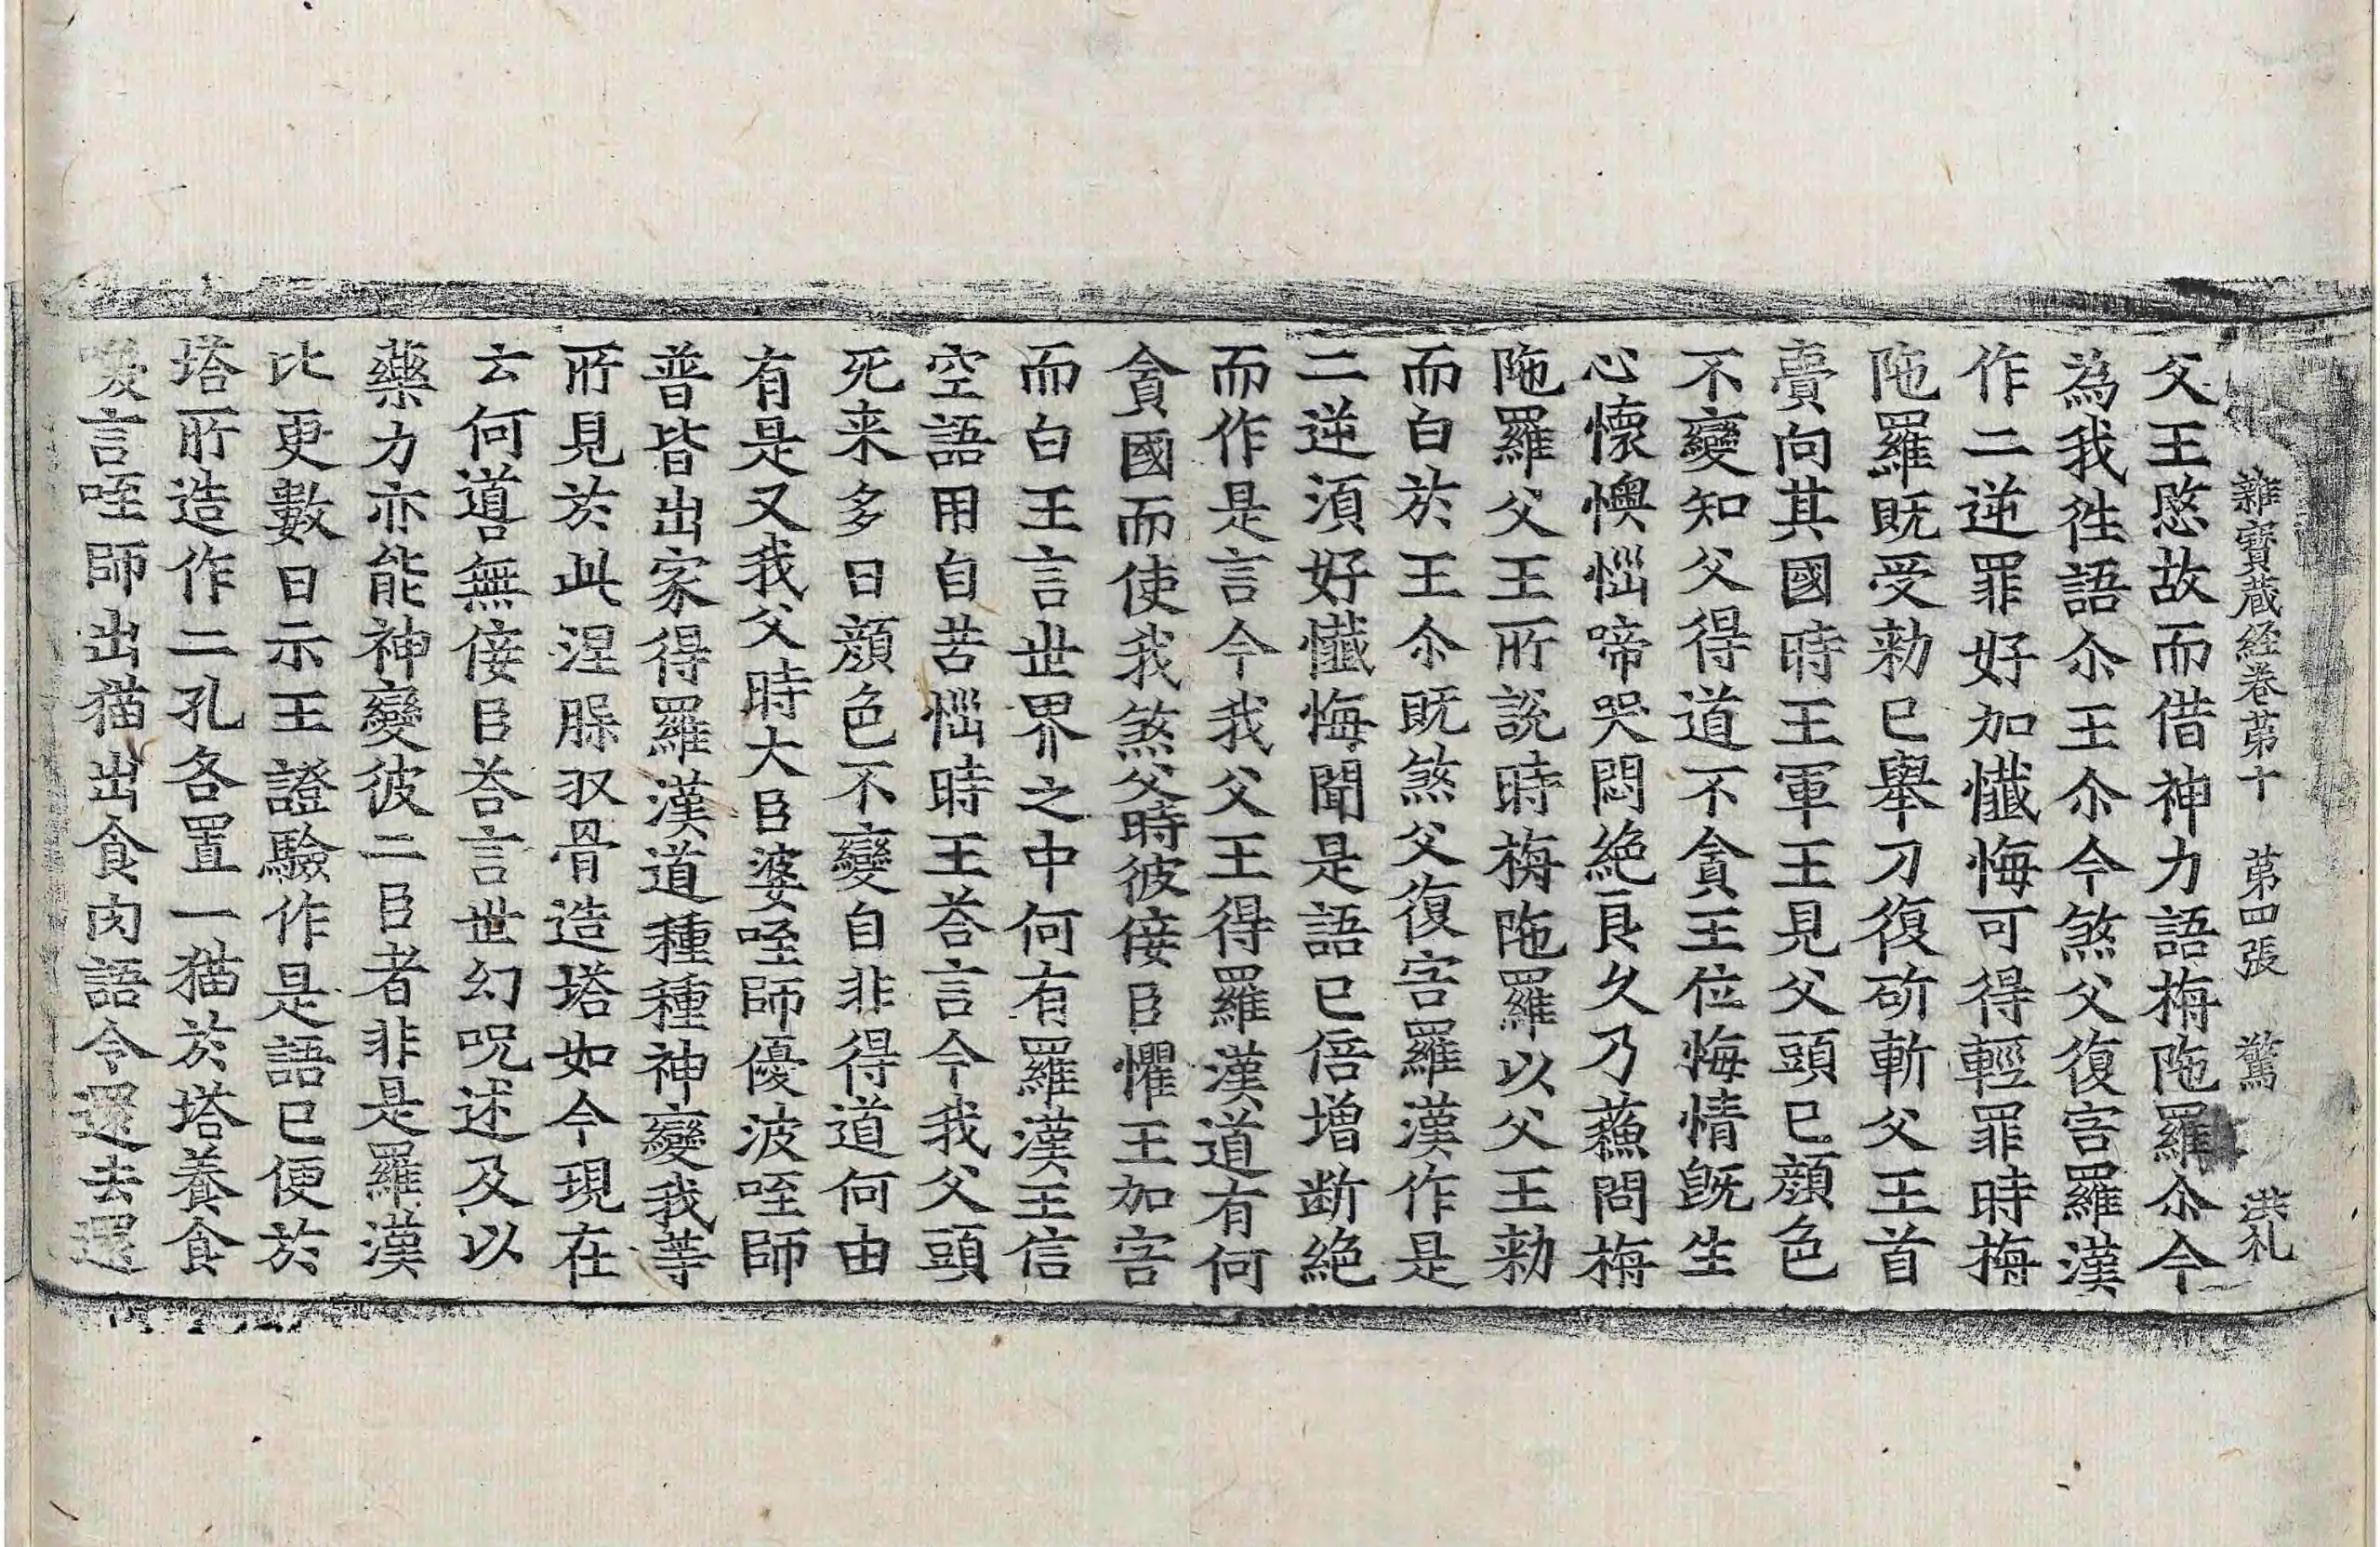 雜寶蔵経卷苐十　苐四張　驚　洪札
父王愍故而借神力語栴陁羅尒今
為我徃語尒王尒今煞父復害羅漢
作二逆罪好加懺悔可得輕罪時栴
陁羅既受勑已舉刀復斫斬父王首
賷向其國時王軍王見父頭已顔色
不變知父得道不貪王位悔情旣生
心懐懊惱啼哭悶絶良久乃蘓問栴
陁羅父王所說時栴陁羅以父王勑
而白於王尒既煞父復害羅漢作是
二逆湏好懺悔聞是語已倍增断絶
而作是言今我父王得羅漢道有何
貪國而使我煞父時彼佞臣懼王加害
而白王言世界之中何有羅漢王信
空語用自苦惱時王荅言今我父頭
死来多日顔色不變自非得道何由
有是又我父時大臣婆咥師優波咥師
普皆出家得羅漢道種種神變我等
所見於此涅槃収骨造塔如今現在
云何道無佞臣荅言世幻呪述及以
藥力亦能神變彼二臣者非是羅漢
比更數日示王證驗作是語已便於
塔所造作二孔各置一猫於塔養食
喚言咥師出猫出食肉語令還去還